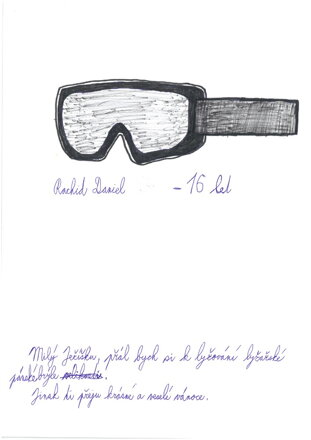 Rachid Daniel - 16 let
Milý Ježíšku, přál bych si k lyžování lyžařské
pánské brýle .
Jinak ti přeju krásné a veselé vánoce.